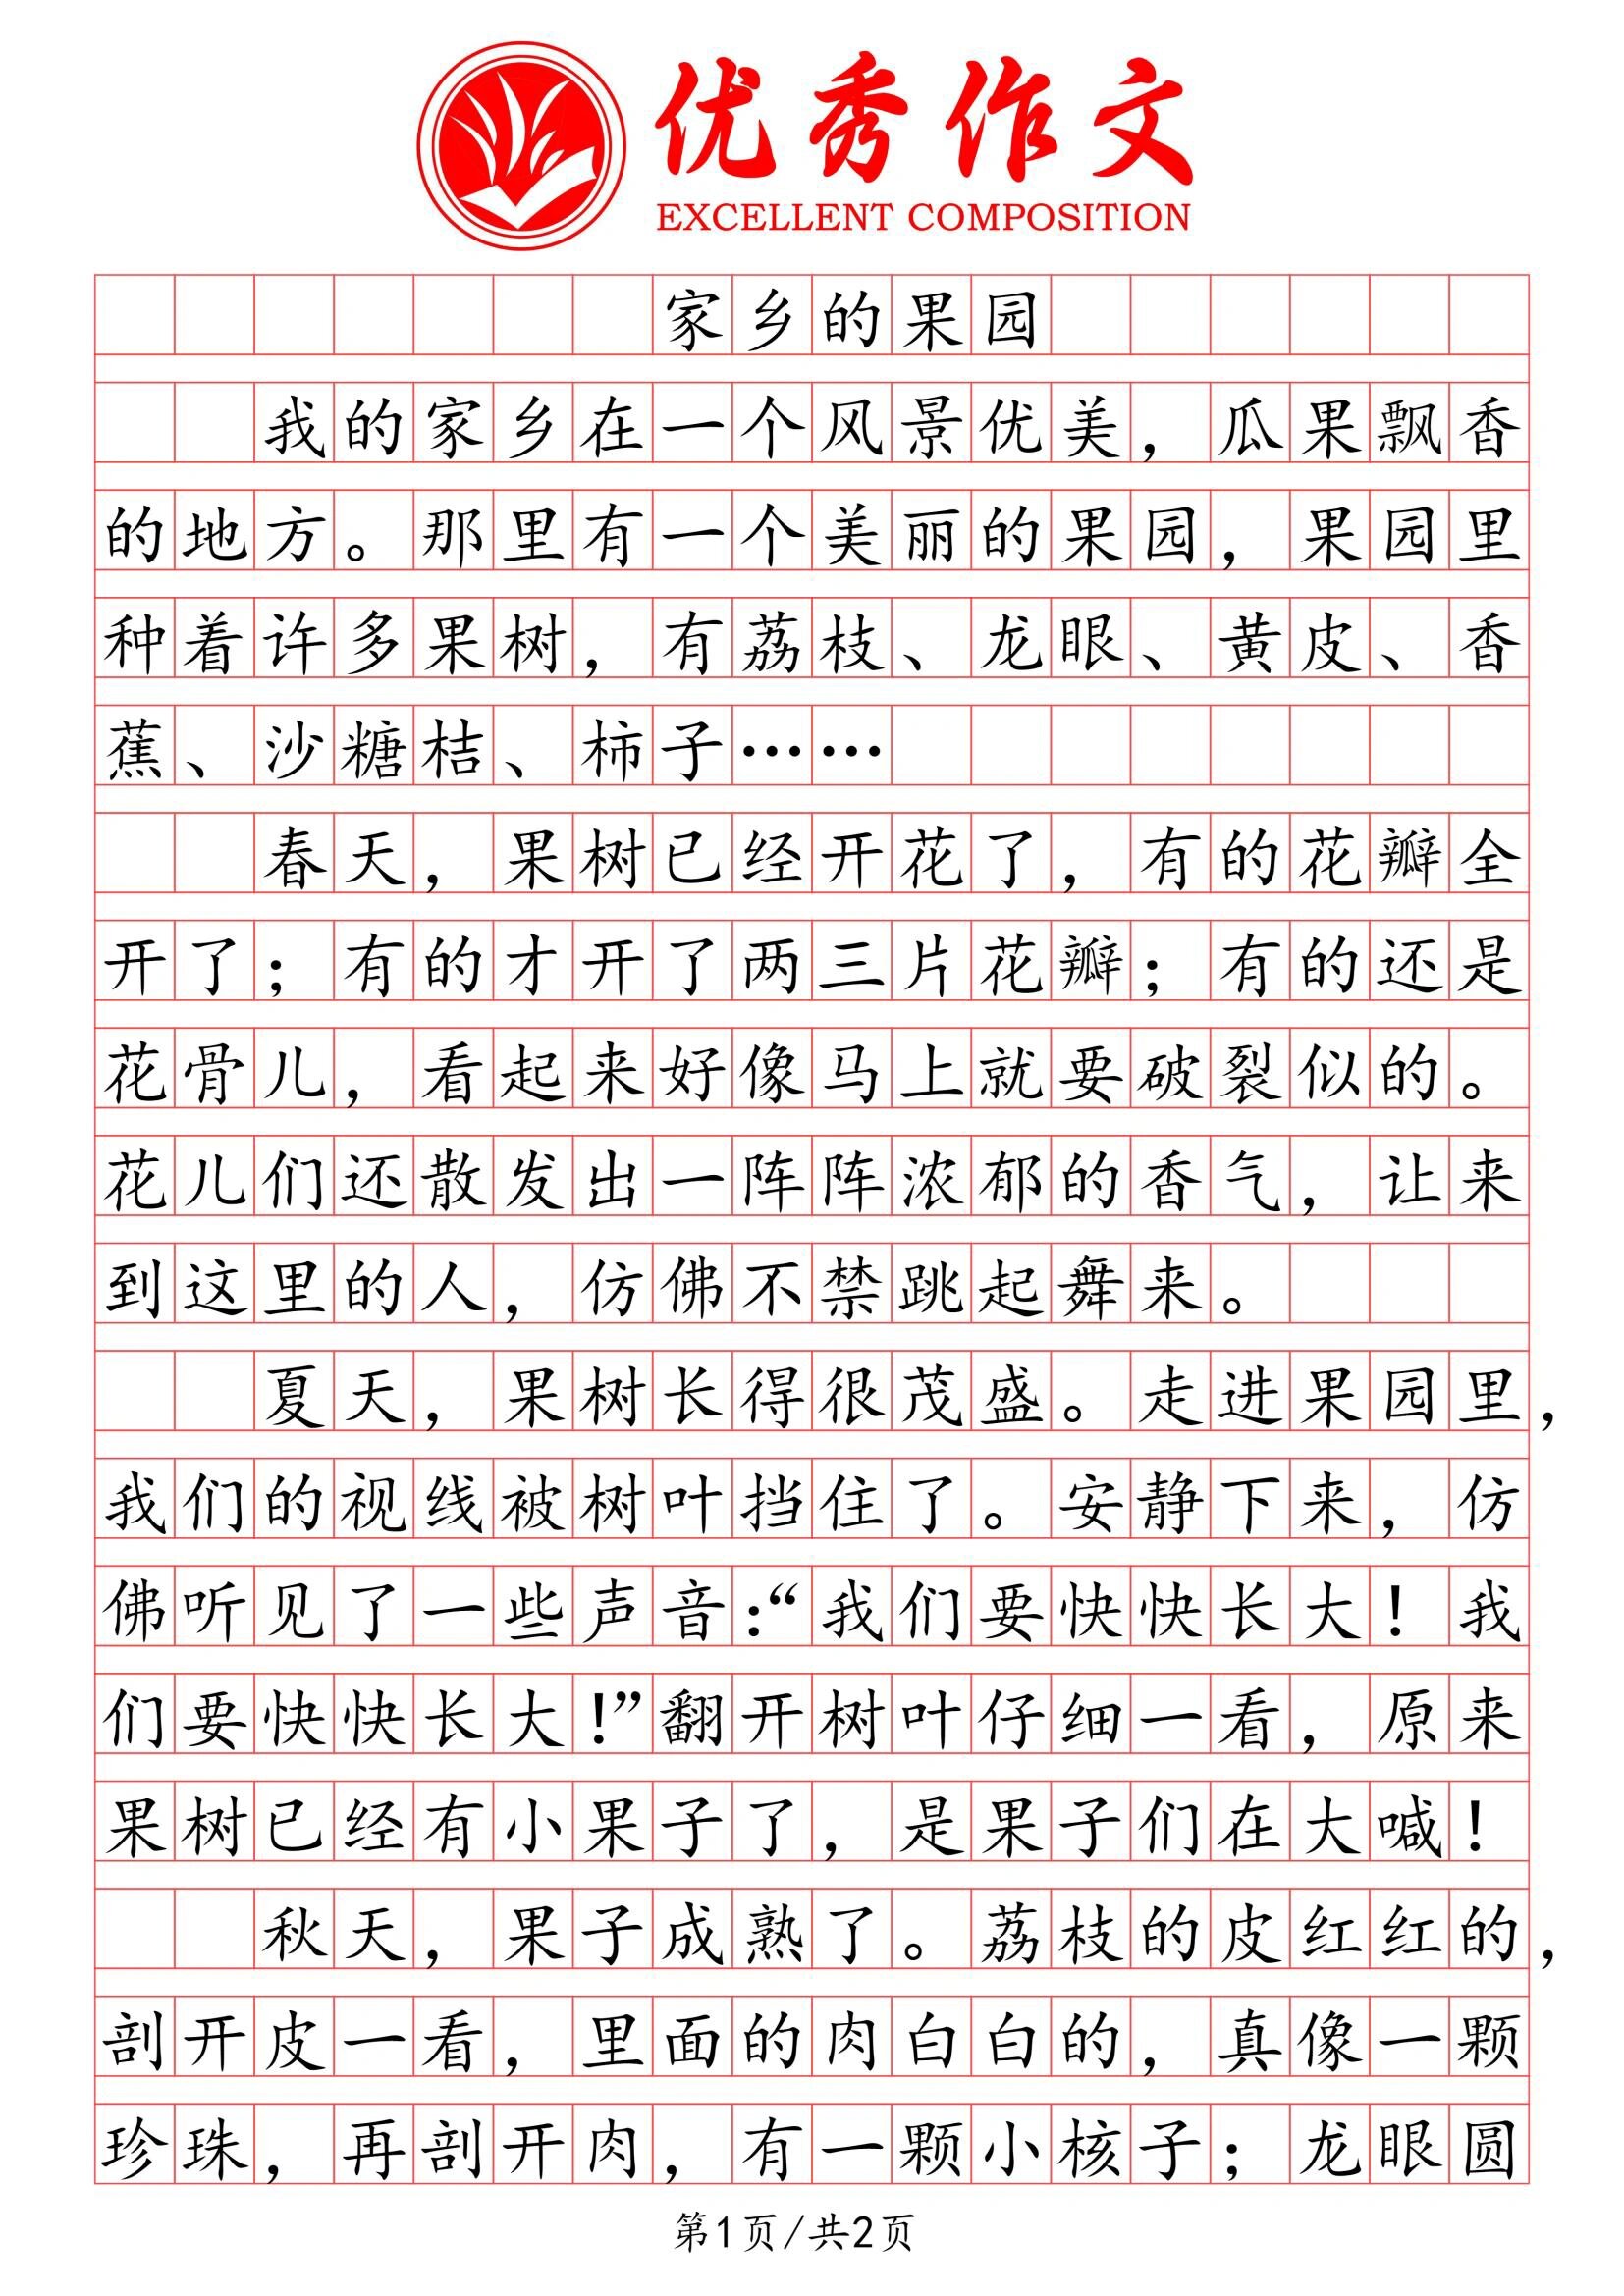 优秀作文
EXCELLENT COMPOSITION
家乡的果园
我的家乡在一个风景优美，瓜果飘香
的地方。那里有一个美丽的果园，果园里
种着许多果树，有荔枝、龙眼、黄皮、香
蕉、沙糖桔、柿子……
春天，果树已经开花了，有的花瓣全
开了；有的才开了两三片花瓣；有的还是
花骨儿，看起来好像马上就要破裂似的。
花儿们还散发出一阵阵浓郁的香气，让来
到这里的人，仿佛不禁跳起舞来。
夏天，果树长得很茂盛。走进果园里，
我们的视线被树叶挡住了。安静下来，仿
佛听见了一些声音：“我们要快快长大！我
们要快快长大！”翻开树叶仔细一看，原来
果树已经有小果子了，是果子们在大喊！
秋天，果子成熟了。荔枝的皮红红的，
剖开皮一看，里面的肉白白的，真像一颗
珍珠，再剖开肉，有一颗小核子；龙眼圆
第1页/共2页